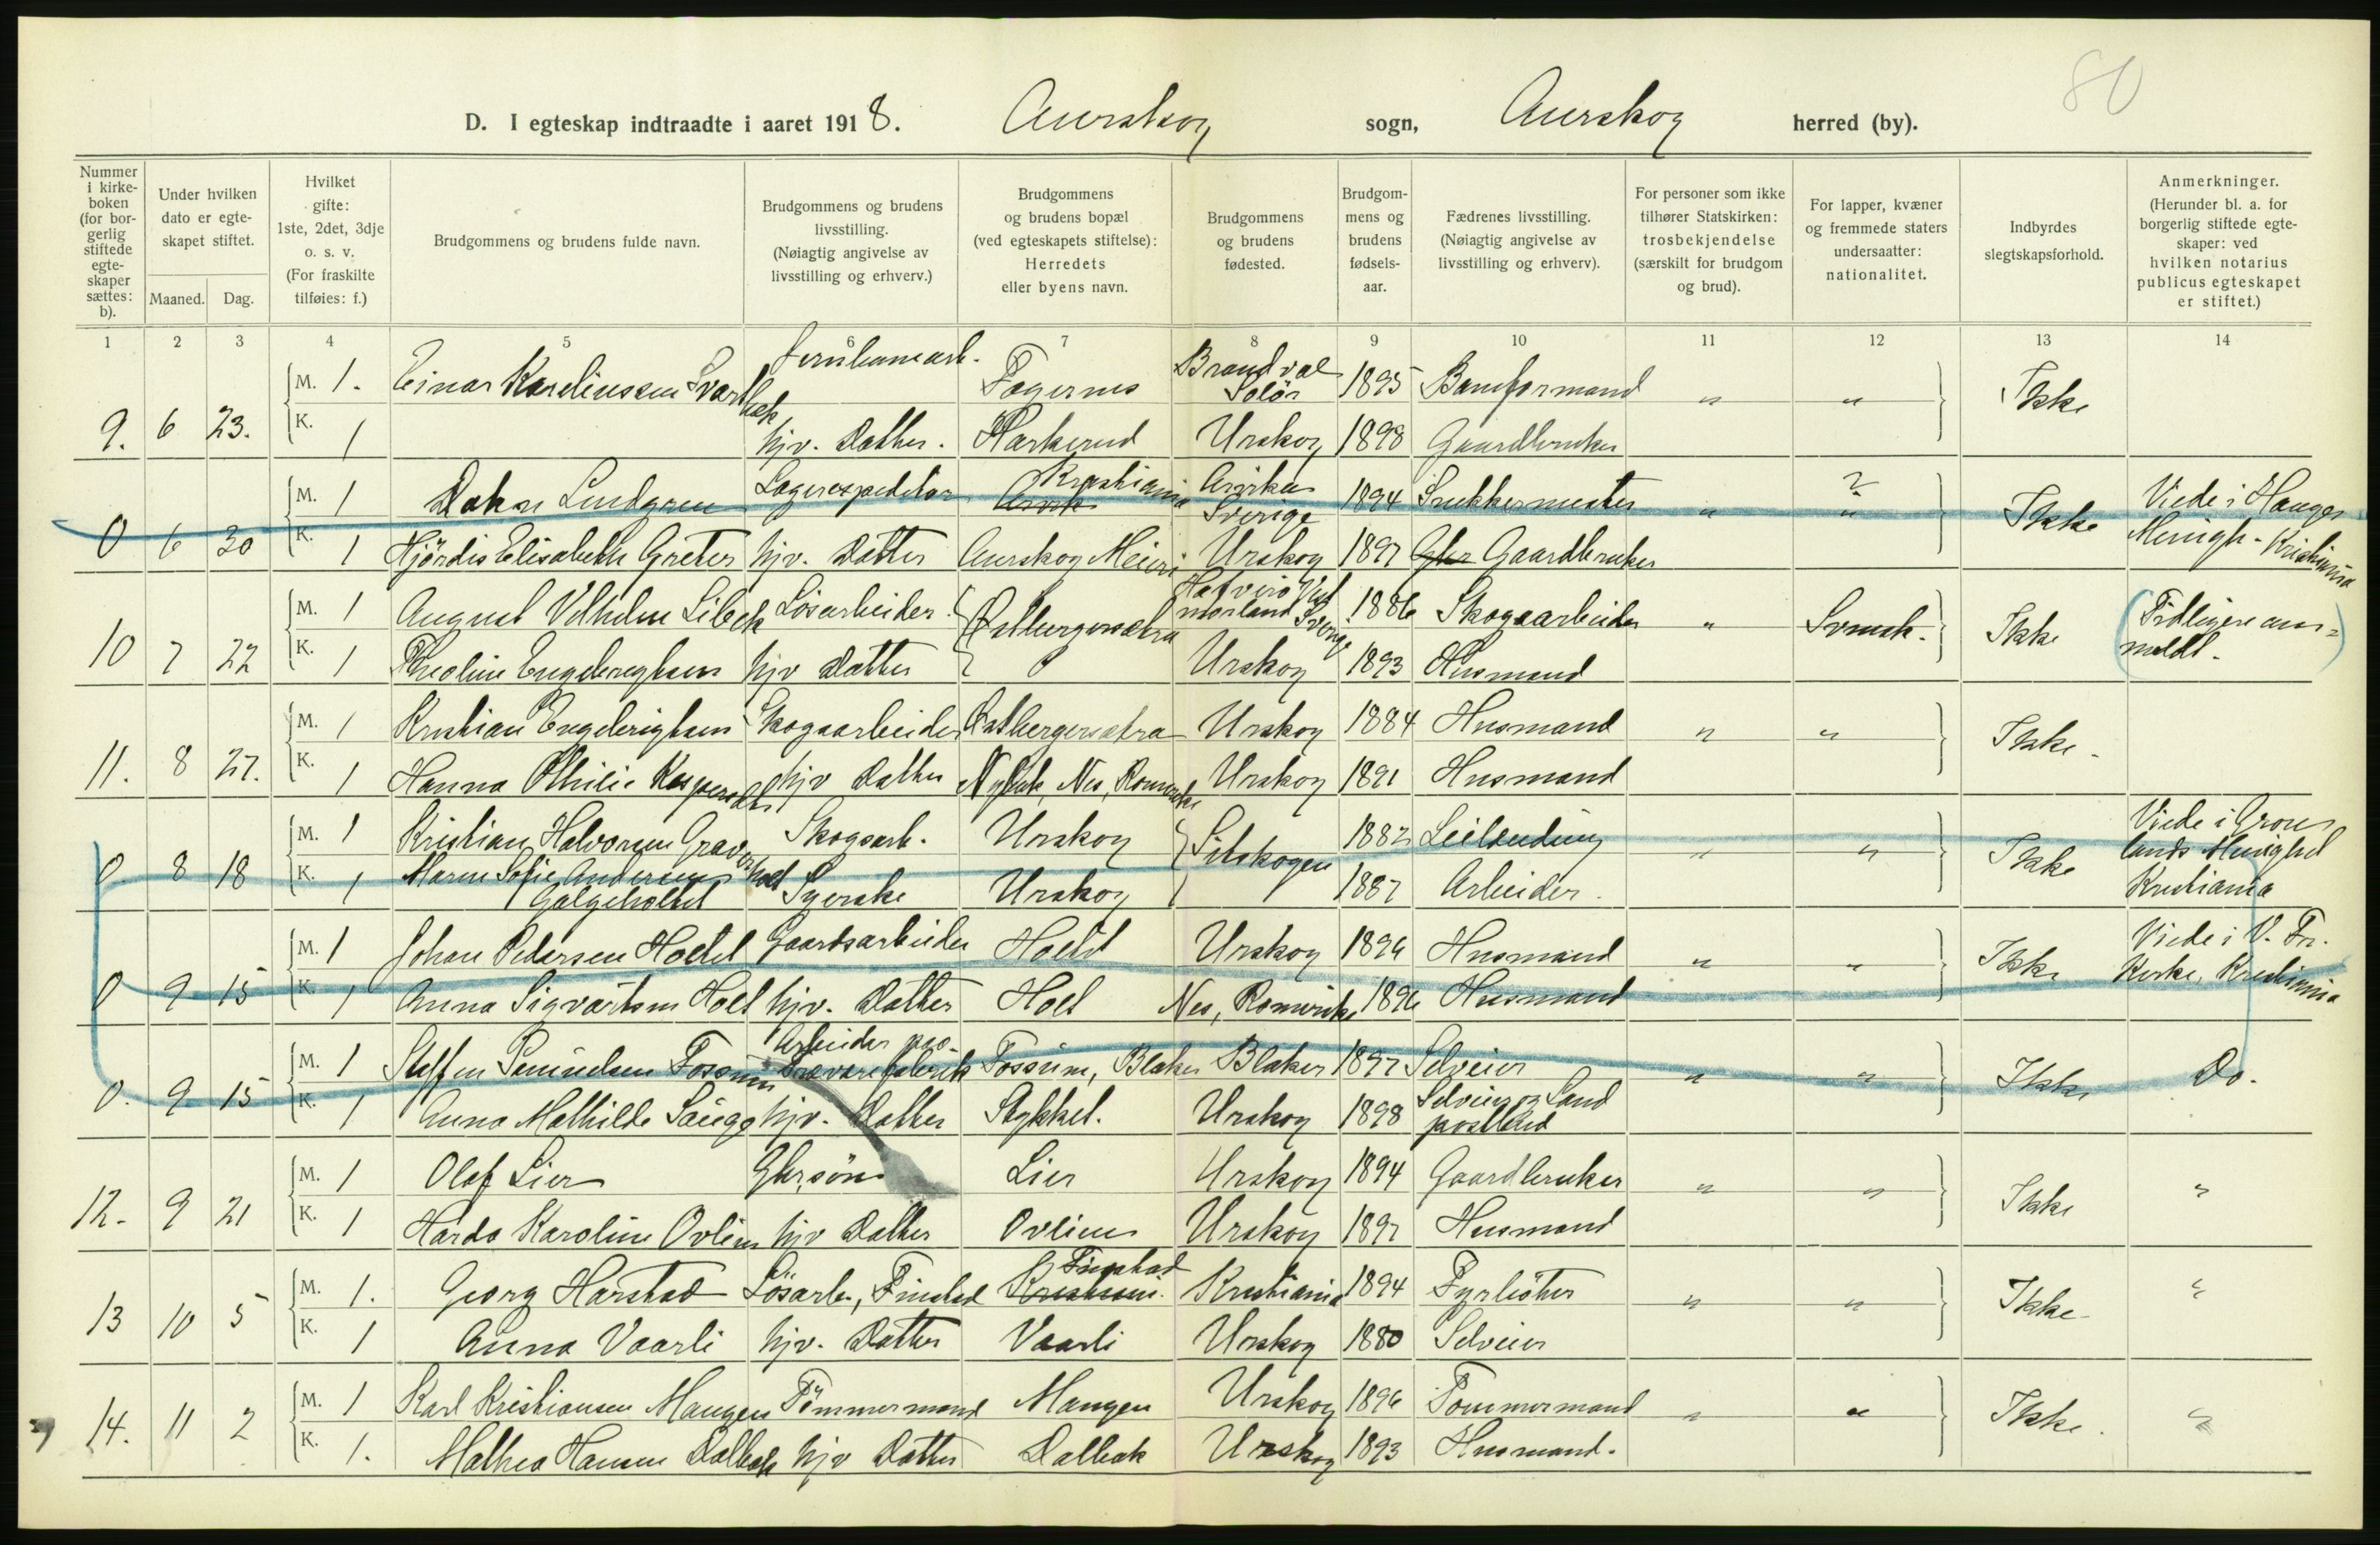 80
D. I egteskap indtraadte i aaret 1918. Aurskog sogn, Aurskog herred (by).
Nummer i kirkeboken (for borgerlig stiftede egteskaper sættes: b).
Under hvilken dato er egteskapet stiftet.
Maaned. Dag.
Hvilket gifte: 1ste, 2det, 3dje o. s. v. (For fraskilte tilføies: f.)
Brudgommens og brudens fulde navn.
Brudgommens og brudens livsstilling. (Nøiagtig angivelse av livsstilling og erhverv.)
Brudgommens og brudens bopæl (ved egteskapets stiftelse): Herredets eller byens navn.
Brudgommens og brudens fødested.
Brudgommens og brudens fødselsaar.
Fædrenes livsstilling. (Nøiagtig angivelse av livsstilling og erhverv).
For personer som ikke tilhører Statskirken: trosbekjendelse (særskilt for brudgom og brud).
For lapper, kvæner og fremmede staters undersaatter: nationalitet.
Indbyrdes slegtskapsforhold.
Anmerkninger. (Herunder bl. a. for borgerlig stiftede egteskaper: ved hvilken notarius publicus egteskapet er stiftet.)
1 2 3 4 5 6 7 8 9 10 11 12 13 14
9. 6 23. M. 1. Einar Karelinssen Svartbæk Fagernes Brandval Solör 1895 Baneformand " " Ikke
K. 1 hjv. Datter. Harkerud Urskog 1898 Gaardbruker
0 6 30 M. 1 Lindgren Lagerexpeditör Kristiania Arvika Sverige 1894 Snekkermester " " Ikke Viede i Hauges Menigh. Kristiania
K. 1 Hjördis Elisabeth Greter hjv. Datter Aurskog Meieri Urskog 1897 Gbr Gaardbruker
10 7 22 M. 1 August Vilhelm Libek Lösarbeider Østbergersætra Hafverö Vest morland Sverige 1886 Skogsarbeider " Svensk. Ikke (Tidligere anmeldt.)
K. 1 Theoline Engebregtsen hjv Datter Urskog 1893 Husmand
11. 8 27. M. 1 Kristian Engebrigtsen Skogsarbeider Østbergersætra Urskog 1884 Husmand " " Ikke.
K. 1 Hanna Othilie Kaspersen hjv Datter Nybak, Nes, Romerike Urskog 1891 Husmand
0 8 18 M. 1 Kristian Halvorsen Graverholt Skogsarb. Urskog Setskogen 1882 Leilending " " Ikke Viede i Grønlands Menighet Kristiania
K. 1 Maren Sofie Andersen Galgeholtet Syerske Urskog 1887 Arbeider.
0 9 15 M. 1 Johan Pedersen Hoelst Gaardsarbeider Urskog 1896 Husmand " " Ikke Viede i V. Fr. Kirke, Kristiania
K. 1 Anna Sigvartsen Hoel hjv. Datter Hoel Nes, Romerike 1896 Husmand
0. 9 15 M. 1 Steffen Fossum Arbeider paa Trævarefabrik Fossum, Blaker Blaker 1897 Selveier " " Ikke Do.
K. 1 Anna Mathilde Saugg hjv. Datter Stykket. Urskog 1898 Selveier og Landpostbud
12. 9 21 M. 1 Olaf Lier Gbr.sön Lier Urskog 1894 Gaardbruker " " Ikke "
K. 1 Karoline Ovlien hjv Datter Ovlien Urskog 1897 Husmand
13 10 5 M. 1. Georg Harstad Lösarb., Finstad Finstad Kristiania Kristiania 1894 Fyrböter " " Ikke "
K. 1 Anna Vaarli hjv. Datter Vaarli Urskog 1880 Selveier
14. 11 2 M. 1 Karl Kristiansen Mangen Tömmermand Mangen Urskog 1896 Tommermand " " Ikke. "
K. 1. Mathea Hansen Dalbak hjv Datter Dalbak Urskog 1893 Husmand.